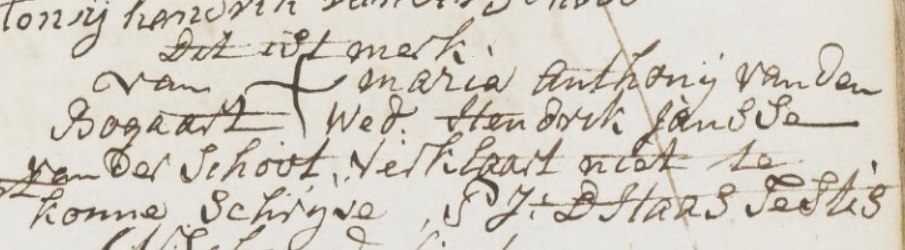 tonij hendrik van der Schoot
Dit ist merk
van maria anthonij vanden
Bogaart Wed. Hendrik Jansse
van Der Schoot, Verklaart niet te
konne Schrijve, P J: D Haas Testis